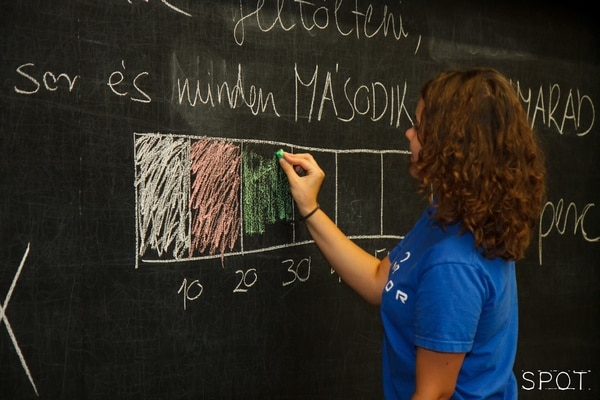 feltölteni,
Sor és minden MÁSODIK MARAD
perc
10 20 30
OR
SPOT